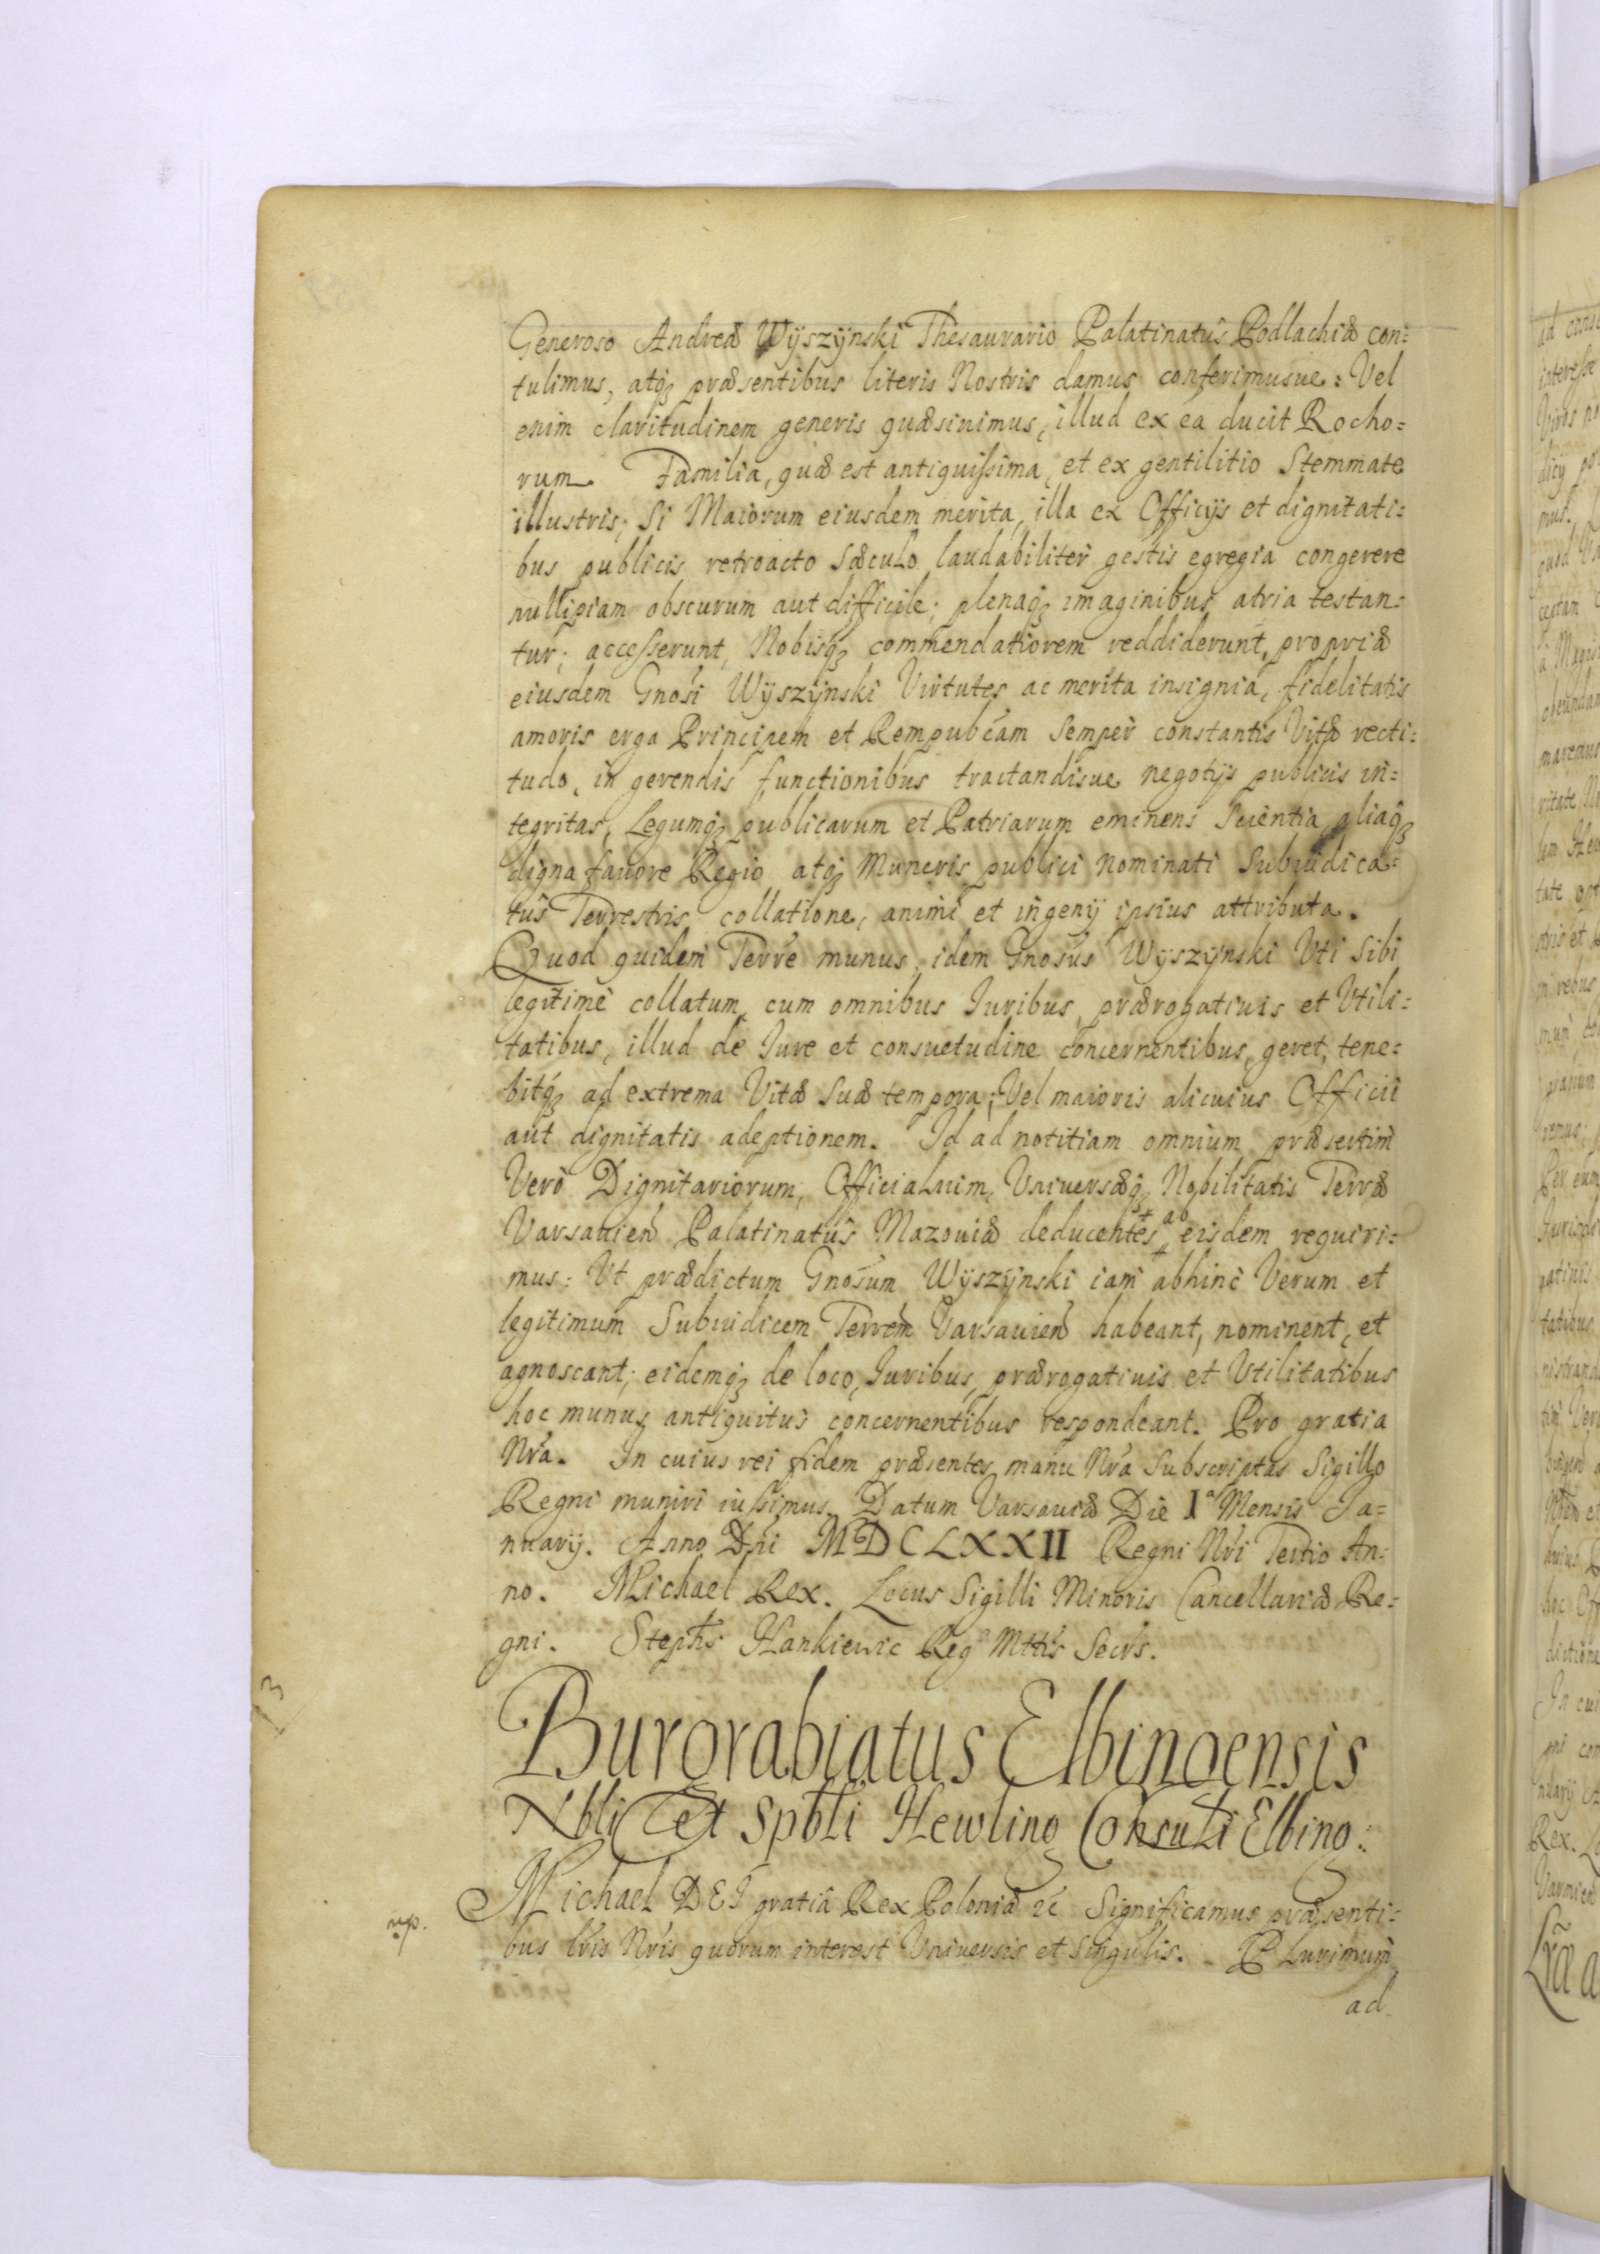 Generoso Andreæ Wÿszÿnski Thesaurario Palatinatûs Podlachiæ con=
tulimus, atq₃ præsentibus literis Nostris damus conferimusue: Vel
enim claritudinem generis quæsiuimus, illud ex ea ducit Rocho=
rum Familia, quæ est antiquissima, et ex gentilitio Stemmate
illustris; Si Maiorum eiusdem merita, illa ex Officÿs et dignitati=
bus publicis retroacto Sæculo laudabilitèr gestis egregia congerere
nulli obscurum aut difficile; plenaq₃ imaginibus atria testan=
tur; accesserunt, Nobisq₃ commendatiorem reddiderunt, propriæ
eiusdem Gnosi Wÿszÿnski Virtutes ac merita insignia, fidelitatis
amoris erga Principem et Rempubcam Sempèr constantis Vitæ recti=
tudo, in gerendis functionibus tractandisue negotÿs publicis in=
tegritas, Legumq₃ publicarum et Patriarum eminens Scientia, aliaq₃
digna fauore Regio atq₃ Muneris publici nominati Subiudica=
tûs Terrestris collatione, animi et ingenÿ ipsius attributa.
Quod quidem Terre munus, idem Gnosus Wÿszÿnski Vti Sibi
legitimè collatum, cum omnibus Iuribus, prærogatiuis et Vtili=
tatibus, illud de Iure et consuetudine concernentibus, geret, tene=
bitq₃ ad extrema Vitæ Suæ tempora; Vel maioris alicuius Officii
aut dignitatis adeptionem. Id ad notitiam omnium, præsertim
Verò Dignitariorum, Officialium, Vniuersæq₃ Nobilitatis Terræ
Varsauien Palatinatûs Mazouiæ deducentes + ab + eisdem requiri=
mus: Vt prædictum Gnosum Wÿszÿnski iam abhinc Verum et
legitimum Subiudicem Terrem Varsauien habeant, nominent, et
agnoscant; eidemq₃ de loco, Iuribus, prærogatiuis et Vtilitatibus
hoc munus antiquitùs concernentibus respondeant. Pro gratia
Nra. In cuius rei fidem præsentes manu Nra Subscriptas Sigillo
Regni muniri iussimus. Datum Varsauiæ Die Iᵃ Mensis Ja=
nuarÿ. Anno Dni MDCLXXII Regni Nri Tertio An=
no. Michael Rex. Locus Sigilli Minoris Cancellariæ Re=
gni. Stephs Hankiewic Regᵃ Mttis Secrs.
13
Burgrabiatus Elbingensis
Nbli et Spbli Hewling Consuli Elbing:
Michael DEI gratiâ Rex Poloniæ &c Significamus præsenti=
bus lris Nris quorum interest Vniuersis et Singulis. Plurimum
ad